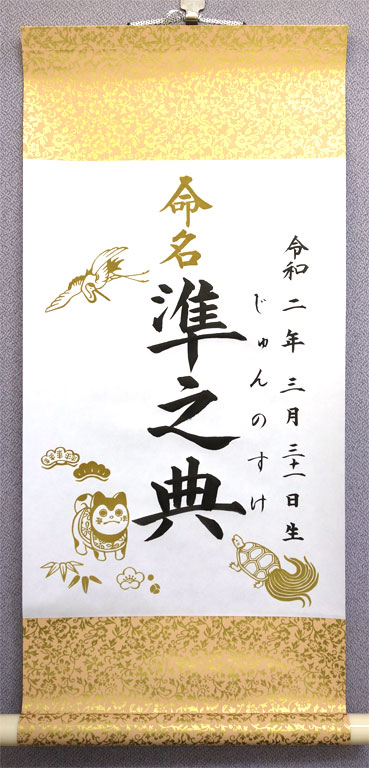 令和二年三月三十一日生
じゅんのすけ
命名
準之典